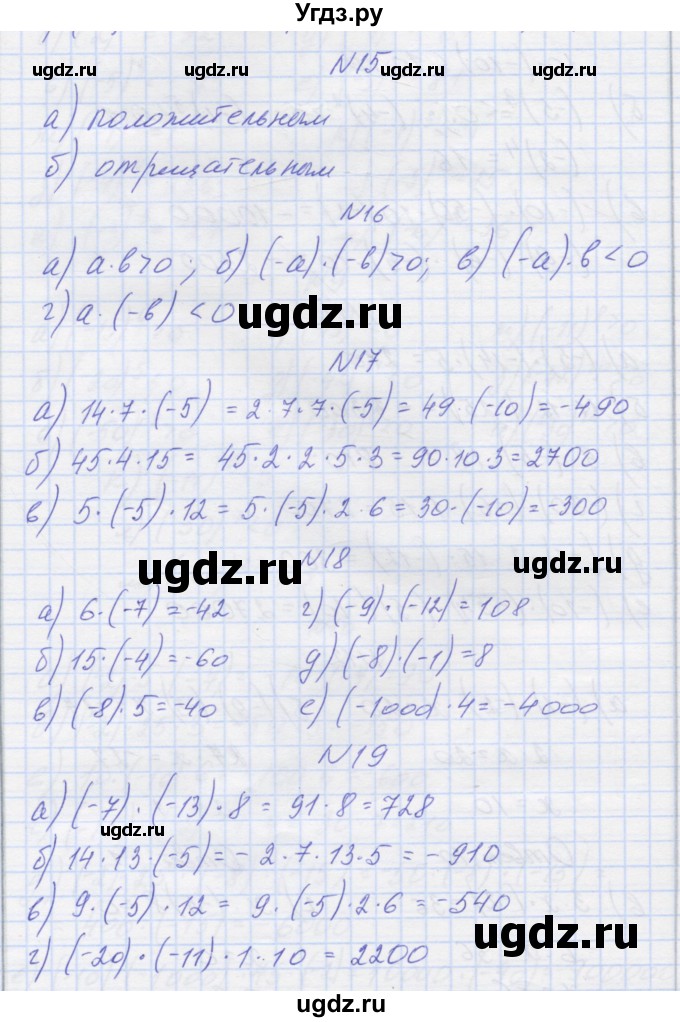 Угдз.ру
ugdz.ru ugdz.ru ugdz.ru ugdz.ru
N15
а) положительным
б) отрицательным
N16
а) а·в>0; б) (-а)·(-в)>0; в) (-а)·в<0
г) а·(-в)<0
ugdz.ru
N17
а) 14·7·(-5) = 2·7·7·(-5) = 49·(-10) = -490
б) 45·4·15 = 45·2·2·5·3 = 90·10·3 = 2700
в) 5·(-5)·12 = 5·(-5)·2·6 = 30·(-10) = -300
N18
ugdz.ru ugdz.ru
а) 6·(-7) = -42 г) (-9)·(-12) = 108
б) 15·(-4) = -60 д) (-8)·(-1) = 8
в) (-8)·5 = -40 е) (-1000)·4 = -4000
N19
а) (-7)·(-13)·8 = 91·8 = 728
ugdz.ru
б) 14·13·(-5) = -2·7·13·5 = -910
в) 9·(-5)·12 = 9·(-5)·2·6 = -540
г) (-20)·(-11)·1·10 = 2200
ugdz.ru ugdz.ru ugdz.ru
ugdz.ru